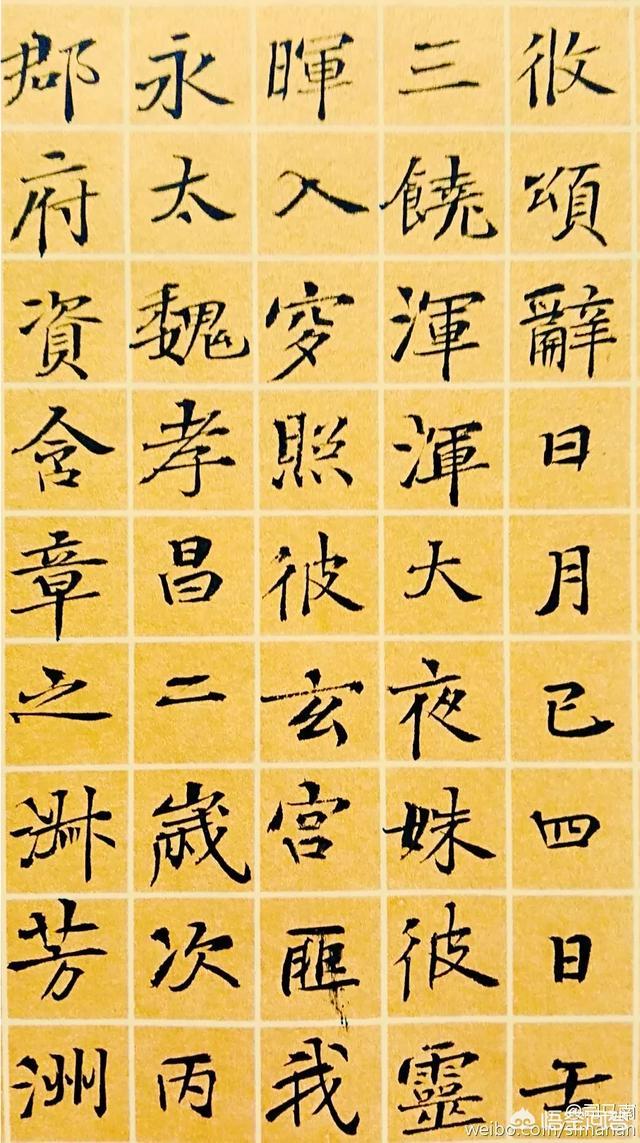 攸頌辭日月已四日
三饒渾渾大夜姝彼靈
暉入穸照彼玄宮匪我
永太魏孝昌二歲次丙
郡府資含章之淑芳洲
悟空问答